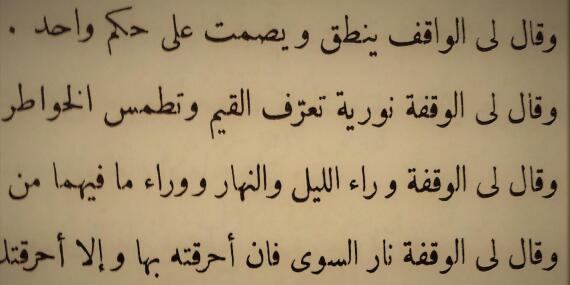 وقال لى الواقف ينطق ويصمت على حكم واحد .
وقال لى الوقفة نورية تعرّف القيم وتطمس الخواطر
وقال لى الوقفة وراء الليل والنهار ووراء ما فيهما من
وقال لى الوقفة نار السوى فان أحرقته بها وإلا أحرقتك